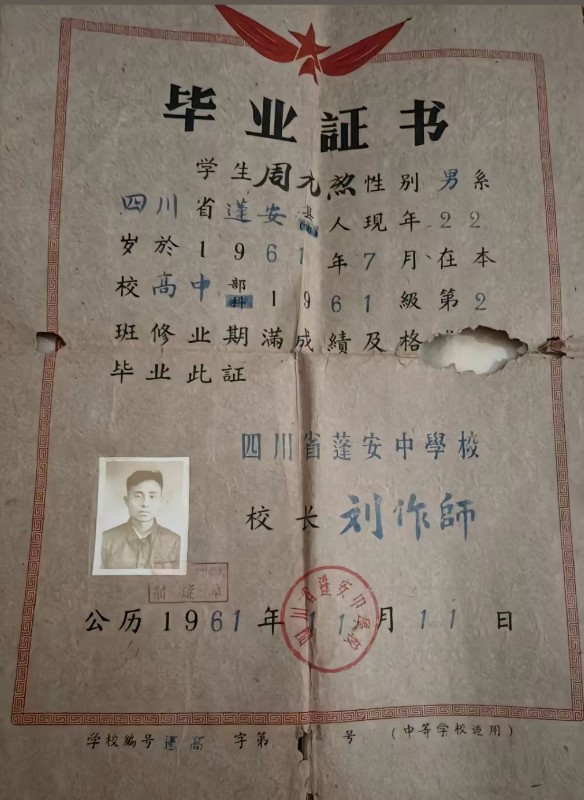 毕业証书
学生周九烈性别男系
四川省蓬安县人現年22
岁於1961年7月、在本
校高中部科1961級第2
班修业期滿成績及格
毕业此証
四川省蓬安中學校
校长刘作師
公历1961年11月11日
四川省蓬安中學校
学校編号 高字第 号 (中等学校适用)